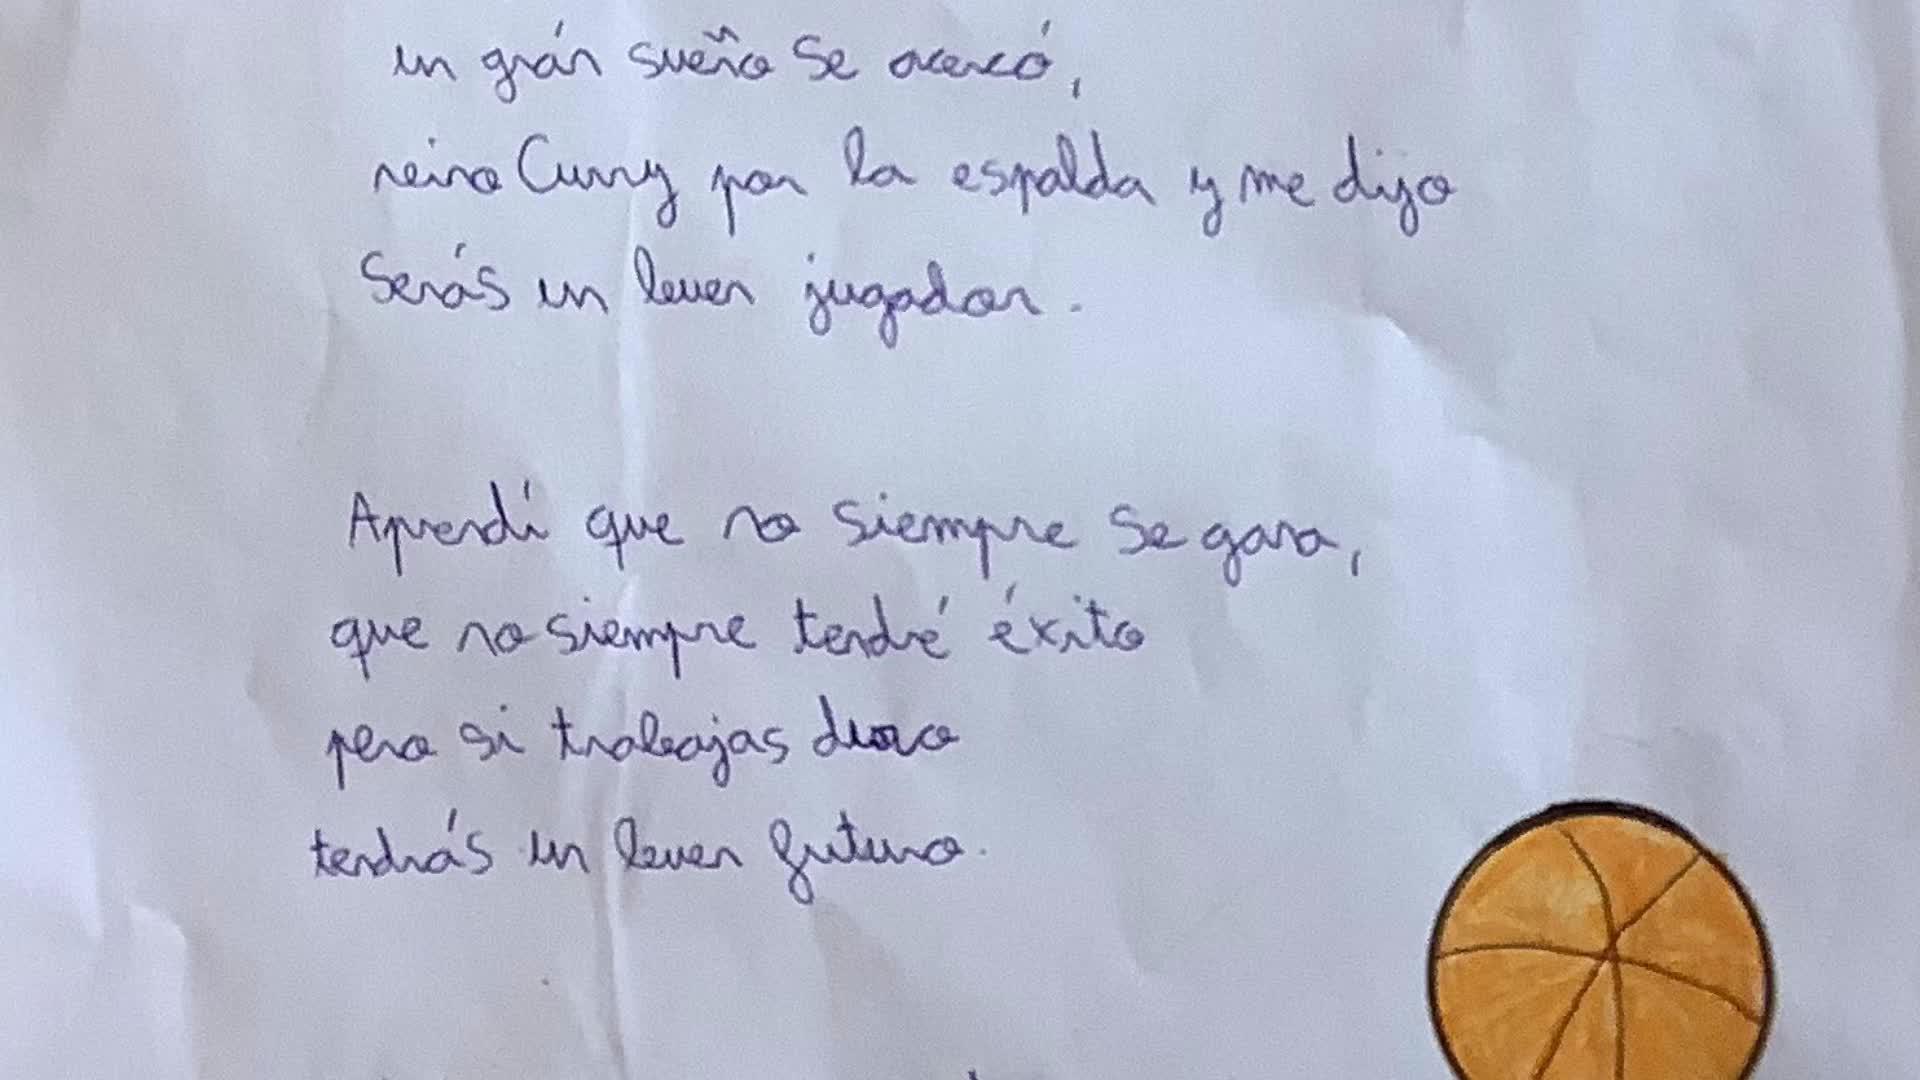 un grán sueño se acercó,
vino Curry por la espalda y me dijo
Serás un buen jugador.
Aprendí que no siempre se gana,
que no siempre tendré éxito
pero si trabajas duro
tendrás un buen futuro.